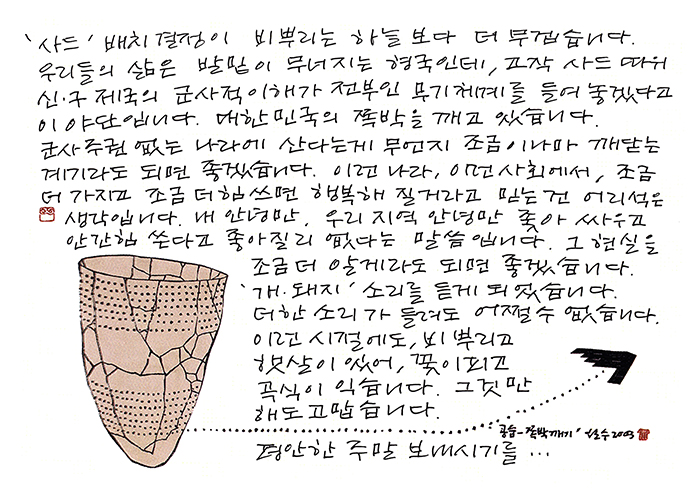 '사드' 배치결정이 비뿌리는 하늘 보다 더 무겁습니다.
우리들의 삶은 발밑이 무너지는 형국인데, 고작 사드 따위
신·구 제국의 군사적이해가 전부인 무기체계를 들여 놓겠다고
이 야단입니다. 대한민국의 쪽박을 깨고 있습니다.
군사주권 없는 나라에 산다는게 무언지 조금이나마 깨닫는
계기라도 되면 좋겠습니다. 이런 나라, 이런 사회에서, 조금
더 가지고 조금 더 힘쓰면 행복해 질거라고 믿는 건 어리석은
생각입니다. 내 안녕만, 우리 지역 안녕만 좇아 싸우고
안간힘 쓴다고 좋아질리 없다는 말씀입니다. 그 현실을
조금 더 알게라도 되면 좋겠습니다.
'개·돼지' 소리를 듣게 되었습니다.
더한 소리가 들려도 어쩔 수 없습니다.
이런 시절에도, 비 뿌리고
햇살이 있어, 꽃이피고
곡식이 익습니다. 그것만
해도 고맙습니다.
공습-쪽박깨기' 철수 2003
평안한 주말 보내시기를 …